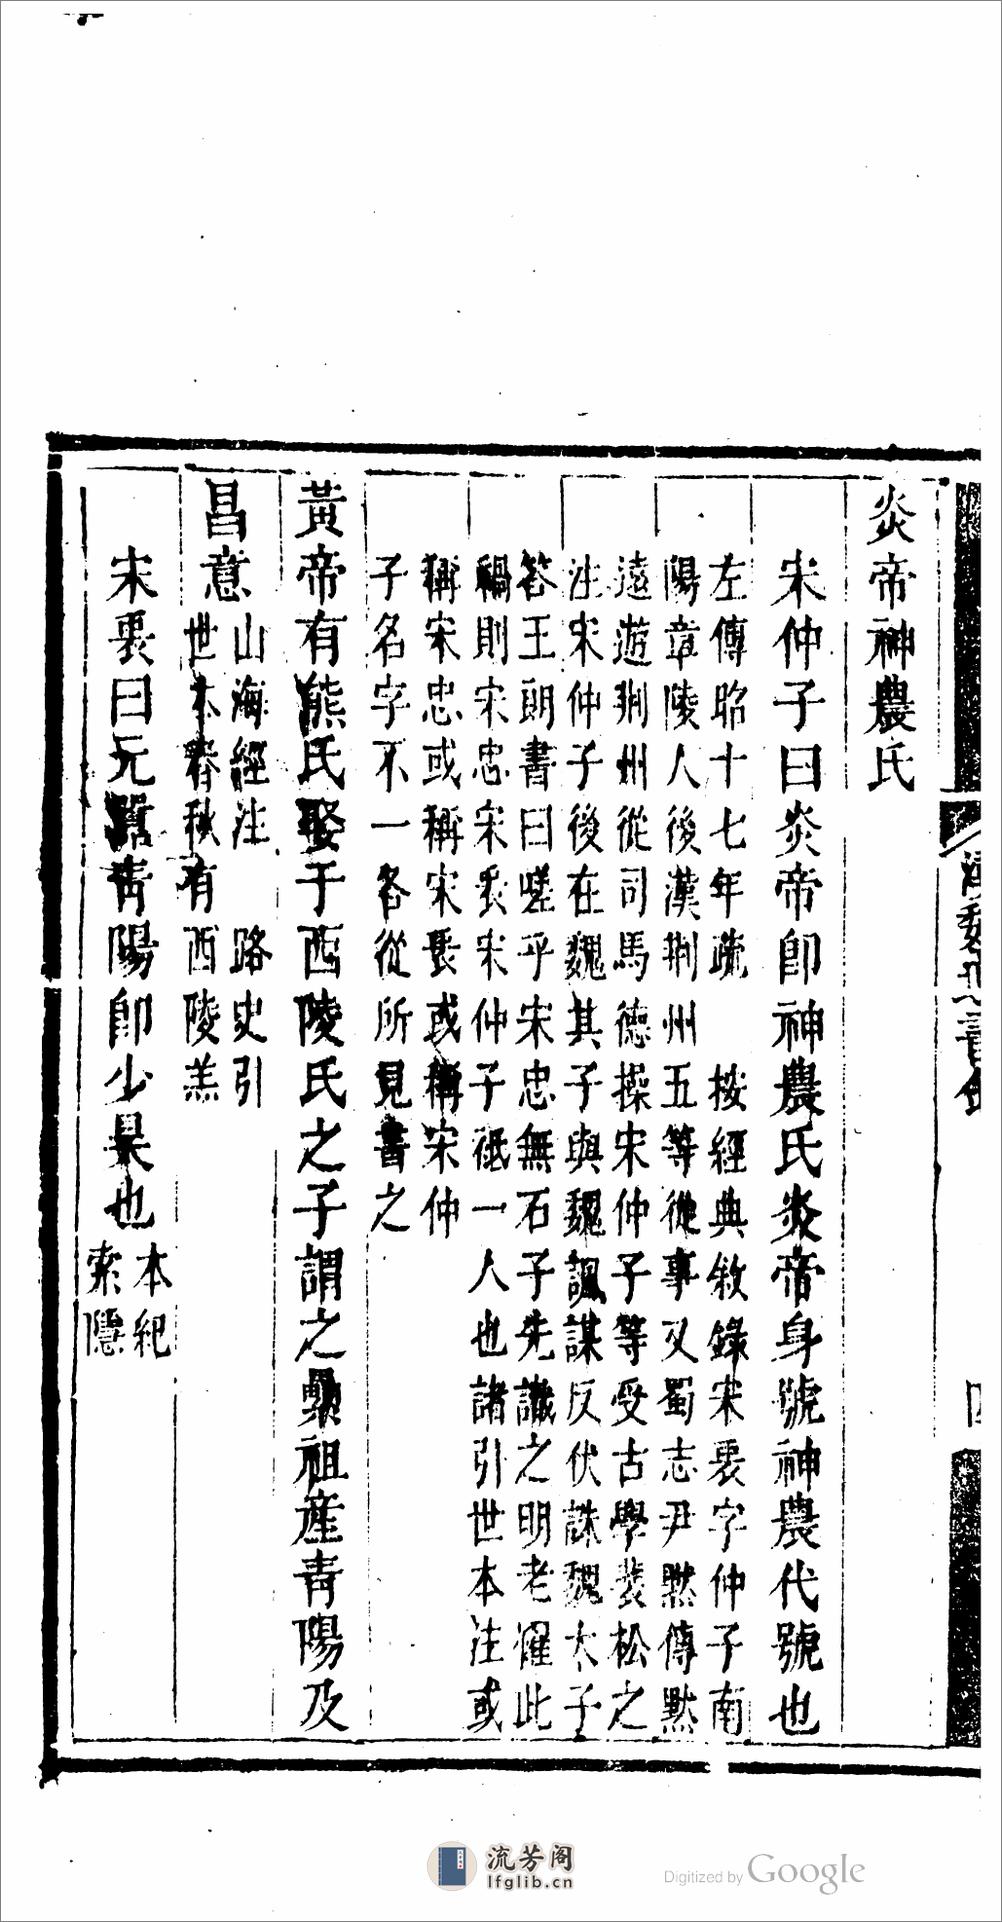 炎帝神農氏
宋仲子曰炎帝卽神農氏炎帝身號神農代號也
左傳昭十七年疏　按經典敘錄宋衷字仲子南
陽章陵人後漢荆州五等從事又蜀志尹黙傳黙
遠遊荆州從司馬德操宋仲子等受古學裴松之
注宋仲子後在魏其子與魏諷謀反伏誅魏太子
答王朗書曰嗟乎宋忠無石子先識之明老罹此
禍則宋忠宋衷宋仲子祗一人也諸引世本注或
稱宋忠或稱宋衷或稱宋仲
子名字不一各從所見書之
黃帝有熊氏娶于西陵氏之子謂之纍祖產青陽及
昌意
山海經注　路史引
世本春秋有西陵羔
宋衷曰元囂青陽卽少昊也
本紀
索隱
漢魏遺書鈔
四
流芳阁
lfglib.cn
Digitized by Google